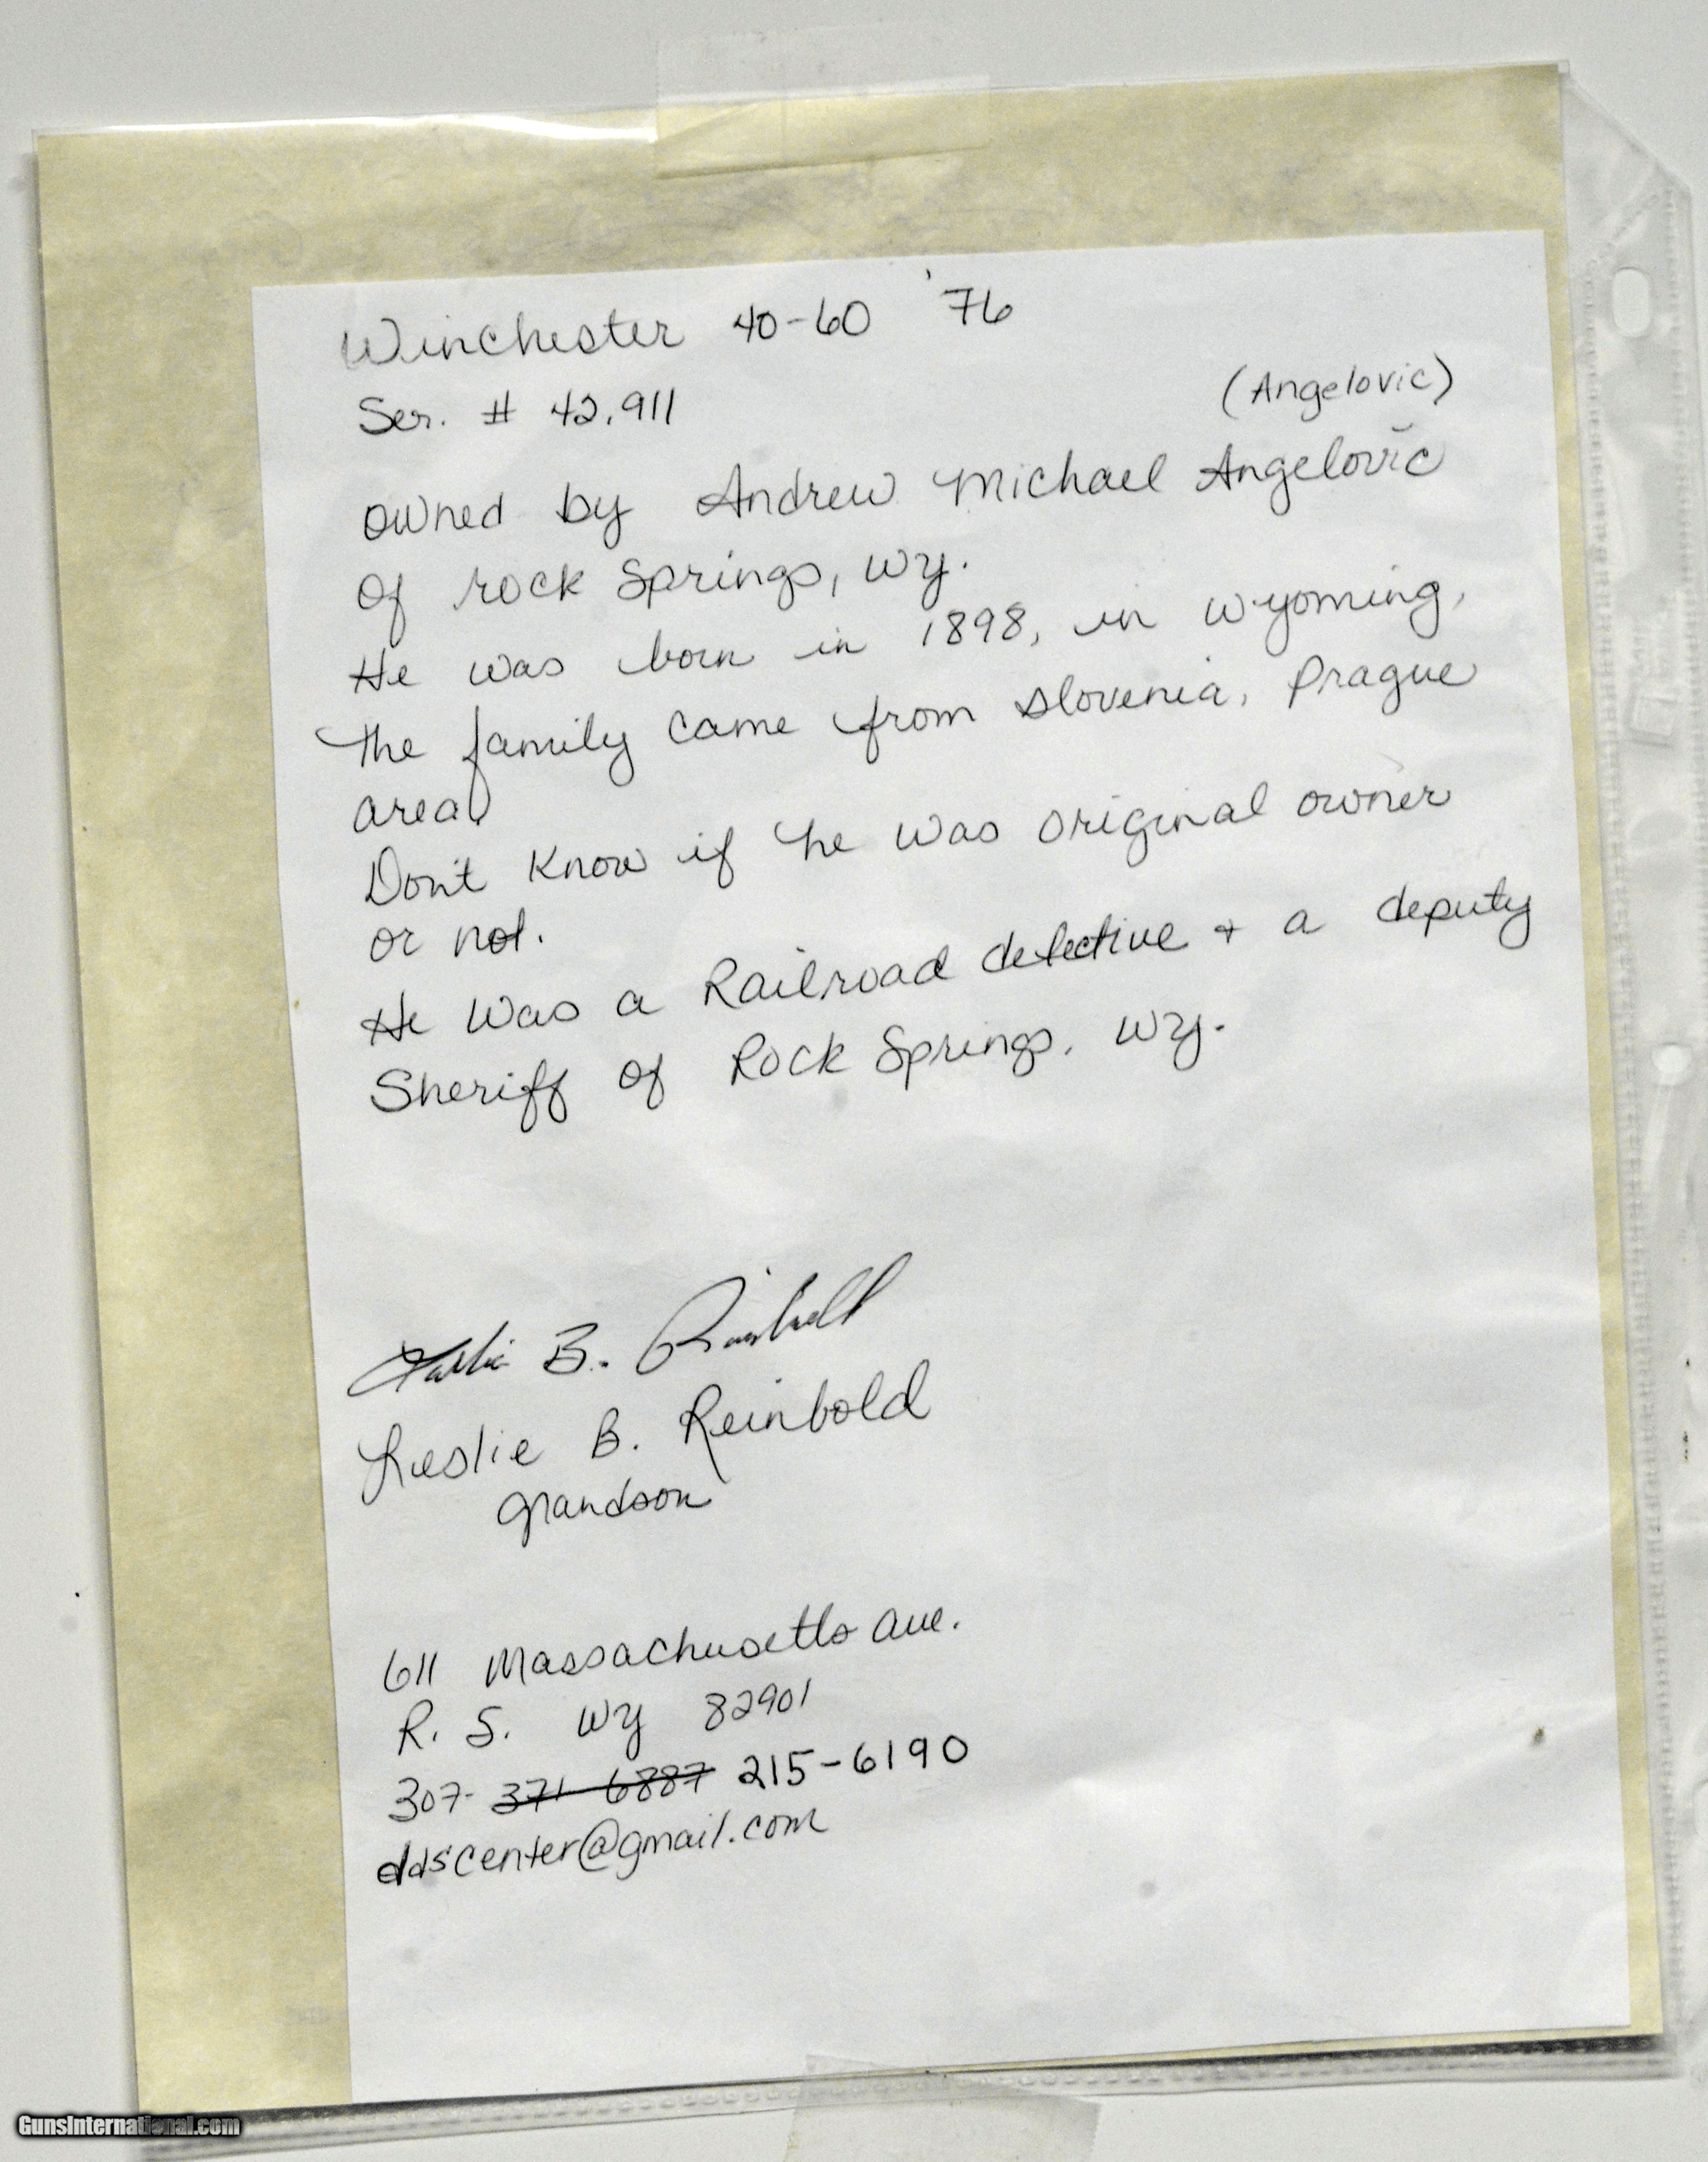 Winchester 40-60 '76
Ser. # 42,911
(Angelovic)
owned by Andrew Michael Angelovič
of rock Springs, Wy.
He was born in 1898, in Wyoming,
The family came from Slovenia, Prague
area.
Don't know if he was original owner
or not.
He was a Railroad detective + a deputy
Sheriff of Rock Springs, Wy.
Leslie B. Reinbold
Leslie B. Reinbold
grandson
611 Massachusetts Ave.
R. S. Wy 82901
307- 371-6887 215-6190
ddscenter@gmail.com
GunsInternational.com